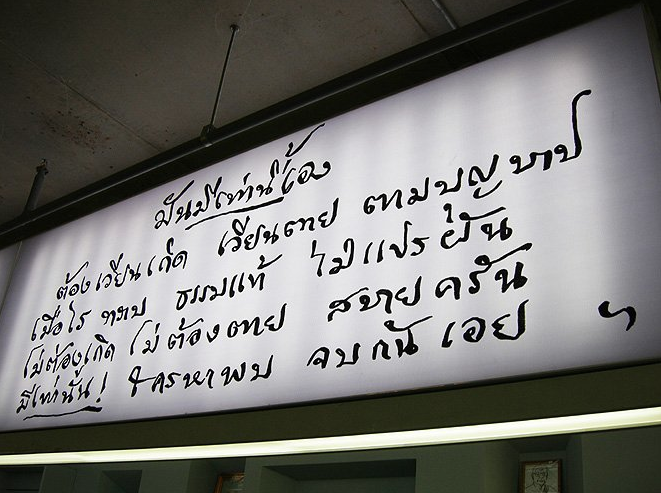 มันมีเท่านี้เอง
ต้องเวียนเกิด เวียนตาย ตามบุญบาป
เมื่อไร ทาบ ธรรมแท้ ไม่แปรผัน
ไม่ต้องเกิด ไม่ต้องตาย สบายครัน
มีเท่านั้น! ใครหาพบ จบกัน เอย ฯ